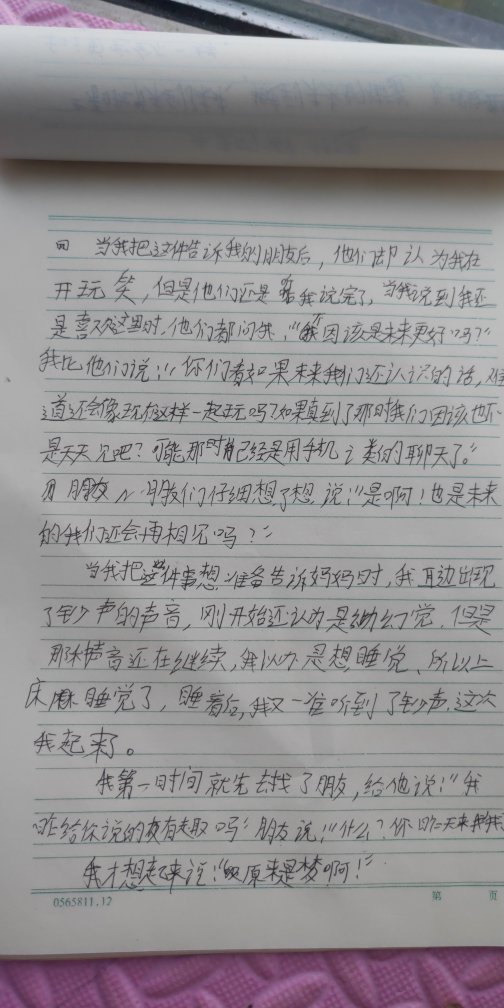 当我把这件告诉我的朋友后，他们却认为我在
开玩笑，但是他们还是我说完了，当我说到我还
是喜欢这里时，他们都问我：“因该是未来更好吗？”
我比他们说：“你们看如果未来我们还认识的话，难
道还会像现在这样一起玩吗？如果真到了那时我们因该也不
是天天见吧？可能那时自己经是用手机之类的聊天了。”
朋友们仔细想了想，说：“是啊！也是未来
的我们还会再相见吗？”
当我把这件事想准备告诉妈妈时，我耳边出现
了钞声的声音，刚开始还认为是幻觉，但是
那种声音还在继续，我以为是想睡觉、所以上
床睡觉了，睡着后，我又一准听到了钞声，这次
我起来了。
我第一时间就先去找了朋友，给他说：“我
昨给你说的有趣吗”朋友说：“什么？你昨天来我
我才想起来说：“原来是梦啊！”
0565811.12
第 页